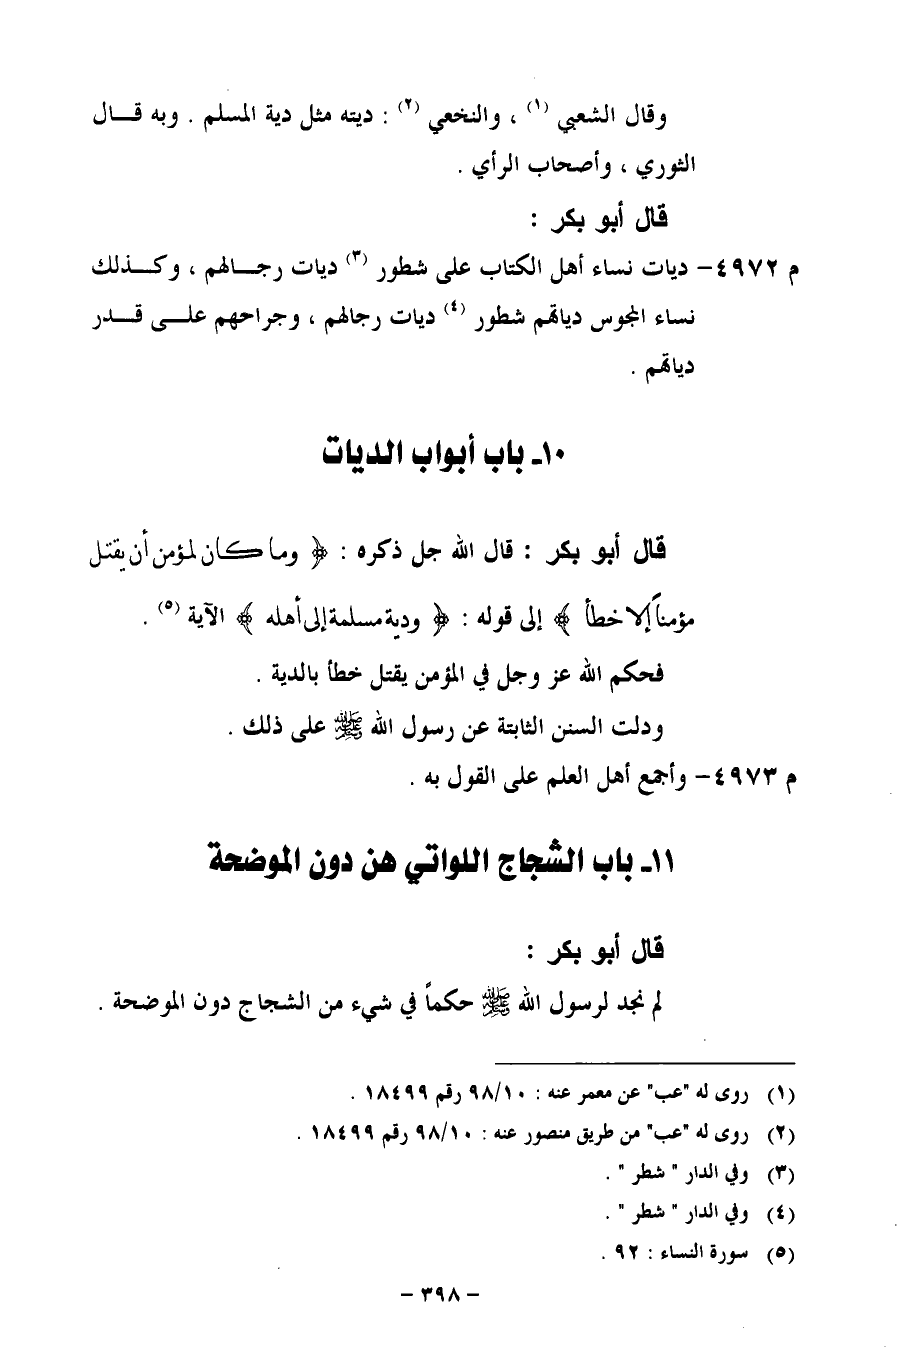 وقال الشعبي (١) ، والنخعي (٢) : ديته مثل دية المسلم . وبه قـــال
الثوري ، وأصحاب الرأي .
قال أبو بكر :
م ٤٩٧٢ – ديات نساء أهل الكتاب على شطور (٣) ديات رجـــالهم ، وكـــذلك
نساء المجوس دياتهم شطور (٤) ديات رجالهم ، وجراحهم علـــى قـــدر
دياتهم .
١٠ـ باب أبواب الديات
قال أبو بكر : قال الله جل ذكره : ﴿ وما كان لمؤمن أن يقتل
مؤمناً إلا خطأ ﴾ إلى قوله : ﴿ ودية مسلمة إلى أهله ﴾ الآية (٥) .
فحكم الله عز وجل في المؤمن يقتل خطأ بالدية .
ودلت السنن الثابتة عن رسول الله ﷺ على ذلك .
م ٤٩٧٣ – وأجمع أهل العلم على القول به .
١١ـ باب الشجاج اللواتي هن دون الموضحة
قال أبو بكر :
لم نجد لرسول الله ﷺ حكماً في شيء من الشجاج دون الموضحة .
(١) روى له "عب" عن معمر عنه : ٩٨/١٠ رقم ١٨٤٩٩ .
(٢) روى له "عب" من طريق منصور عنه : ٩٨/١٠ رقم ١٨٤٩٩ .
(٣) وفي الدار " شطر " .
(٤) وفي الدار " شطر " .
(٥) سورة النساء : ٩٢ .
– ٣٩٨ –